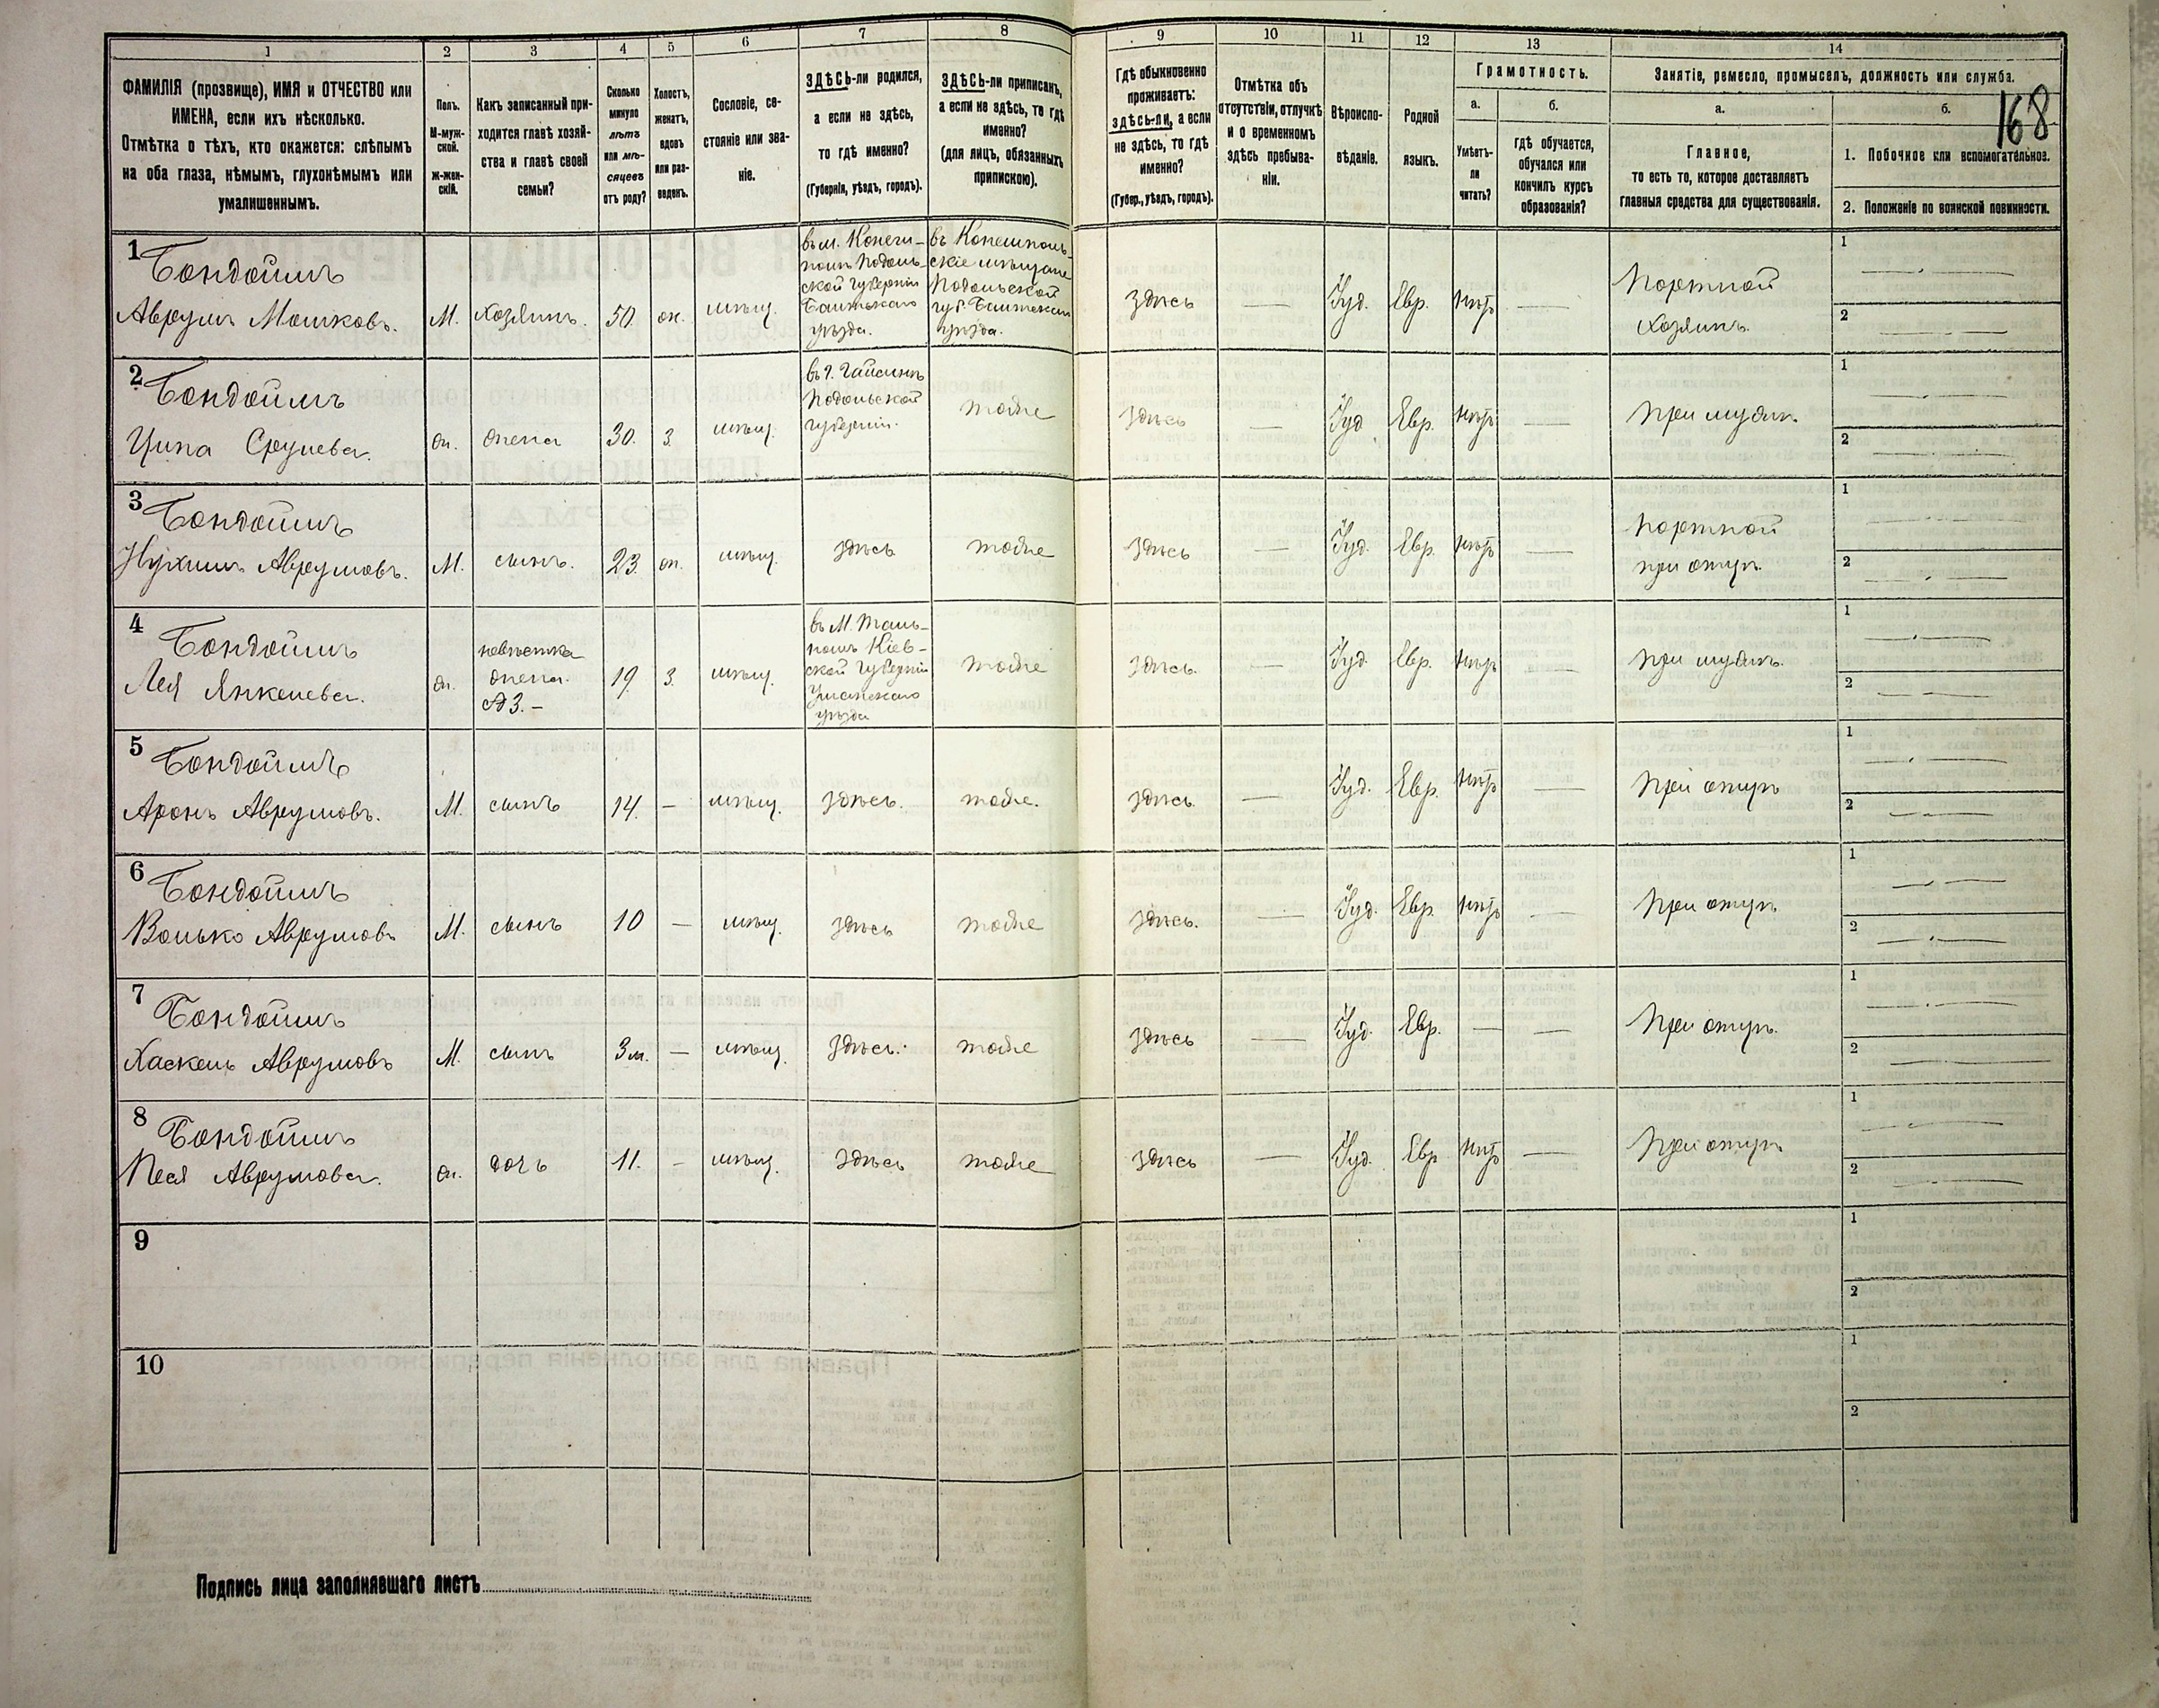 168
1 2 3 4 5 6 7 8 9 10 11 12 13 14
ФАМИЛІЯ (прозвище), ИМЯ и ОТЧЕСТВО или
ИМЕНА, если ихъ нѣсколько.
Отмѣтка о тѣхъ, кто окажется: слѣпымъ
на оба глаза, нѣмымъ, глухонѣмымъ или
умалишеннымъ.
Полъ.
М-муж-
ской.
Ж-жен-
скій.
Какъ записанный при-
ходится главѣ хозяй-
ства и главѣ своей
семьи?
Сколько
минуло
лѣтъ
или мѣ-
сяцевъ
отъ роду?
Холостъ,
женатъ,
вдовъ
или раз-
веденъ.
Сословіе, со-
стояніе или зва-
ніе.
ЗДѢСЬ-ли родился,
а если не здѣсь,
то гдѣ именно?
(Губернія, уѣздъ, городъ).
ЗДѢСЬ-ли приписанъ,
а если не здѣсь, то гдѣ
именно?
(для лицъ, обязанныхъ
припискою).
Гдѣ обыкновенно
проживаетъ:
здѣсь-ли, а если
не здѣсь, то гдѣ
именно?
(Губер., уѣздъ, городъ).
Отмѣтка объ
отсутствіи, отлучкѣ
и о временномъ
здѣсь пребыва-
ніи.
Вѣроиспо-
вѣданіе.
Родной
языкъ.
Грамотность.
а.
Умѣетъ-
ли
читать?
б.
гдѣ обучается,
обучался или
кончилъ курсъ
образованія?
Занятіе, ремесло, промыселъ, должность или служба.
а.
Главное,
то есть то, которое доставляетъ
главныя средства для существованія.
б.
1. Побочное или вспомогательное.
2. Положеніе по воинской повинности.
1
Бондоймъ
Аврумъ Мошковъ.
М.
хозяинъ.
50.
ж.
мѣщ.
въ м.
Подоль-
ской губерніи
Балтскаго
уѣзда.
мѣщане
Подольской
губ.
уѣзда.
здѣсь
—
Іуд.
Евр.
нѣтъ
—
Портной
хозяинъ.
1 —
2 —
2
Бондоймъ
Ципа Срулева.
ж.
жена
30.
з.
мѣщ.
въ г. Гайсинѣ
Подольской
губерніи.
тоже
здѣсь
—
Іуд.
Евр.
нѣтъ
—
при мужѣ.
1 —
2 —
3
Бондоймъ
Нухимъ Аврумовъ.
М.
сынъ.
23.
ж.
мѣщ.
здѣсь
тоже
здѣсь
—
Іуд.
Евр.
нѣтъ
—
портной
при отцѣ.
1 —
2 —
4
Бондоймъ
Лея Янкелева.
ж.
невѣстка
жена
№3.—
19.
з.
мѣщ.
въ М. Таль-
номъ Кіев-
ской губерніи
Уманскаго
уѣзда
тоже
здѣсь.
—
Іуд.
Евр.
нѣтъ
—
при мужѣ.
1 —
2 —
5
Бондоймъ
Аронъ Аврумовъ.
М.
сынъ
14.
—
мѣщ.
здѣсь.
тоже.
здѣсь
—
Іуд.
Евр.
нѣтъ
—
при отцѣ
1 —
2 —
6
Бондоймъ
Волько Аврумовъ
М.
сынъ
10
—
мѣщ.
здѣсь
тоже
здѣсь.
—
Іуд.
Евр.
нѣтъ
—
при отцѣ
1 —
2 —
7
Бондоймъ
Хаскель Аврумовъ
М.
сынъ
3 м.
—
мѣщ.
здѣсь.
тоже
здѣсь
—
Іуд.
Евр.
—
—
при отцѣ.
1 —
2 —
8
Бондоймъ
Песя Аврумова.
ж.
дочь
11.
—
мѣщ.
здѣсь
тоже
здѣсь
—
Іуд.
Евр
нѣтъ
—
при отцѣ
1 —
2 —
9
1
2
10
1
2
Подпись лица заполнявшаго листъ